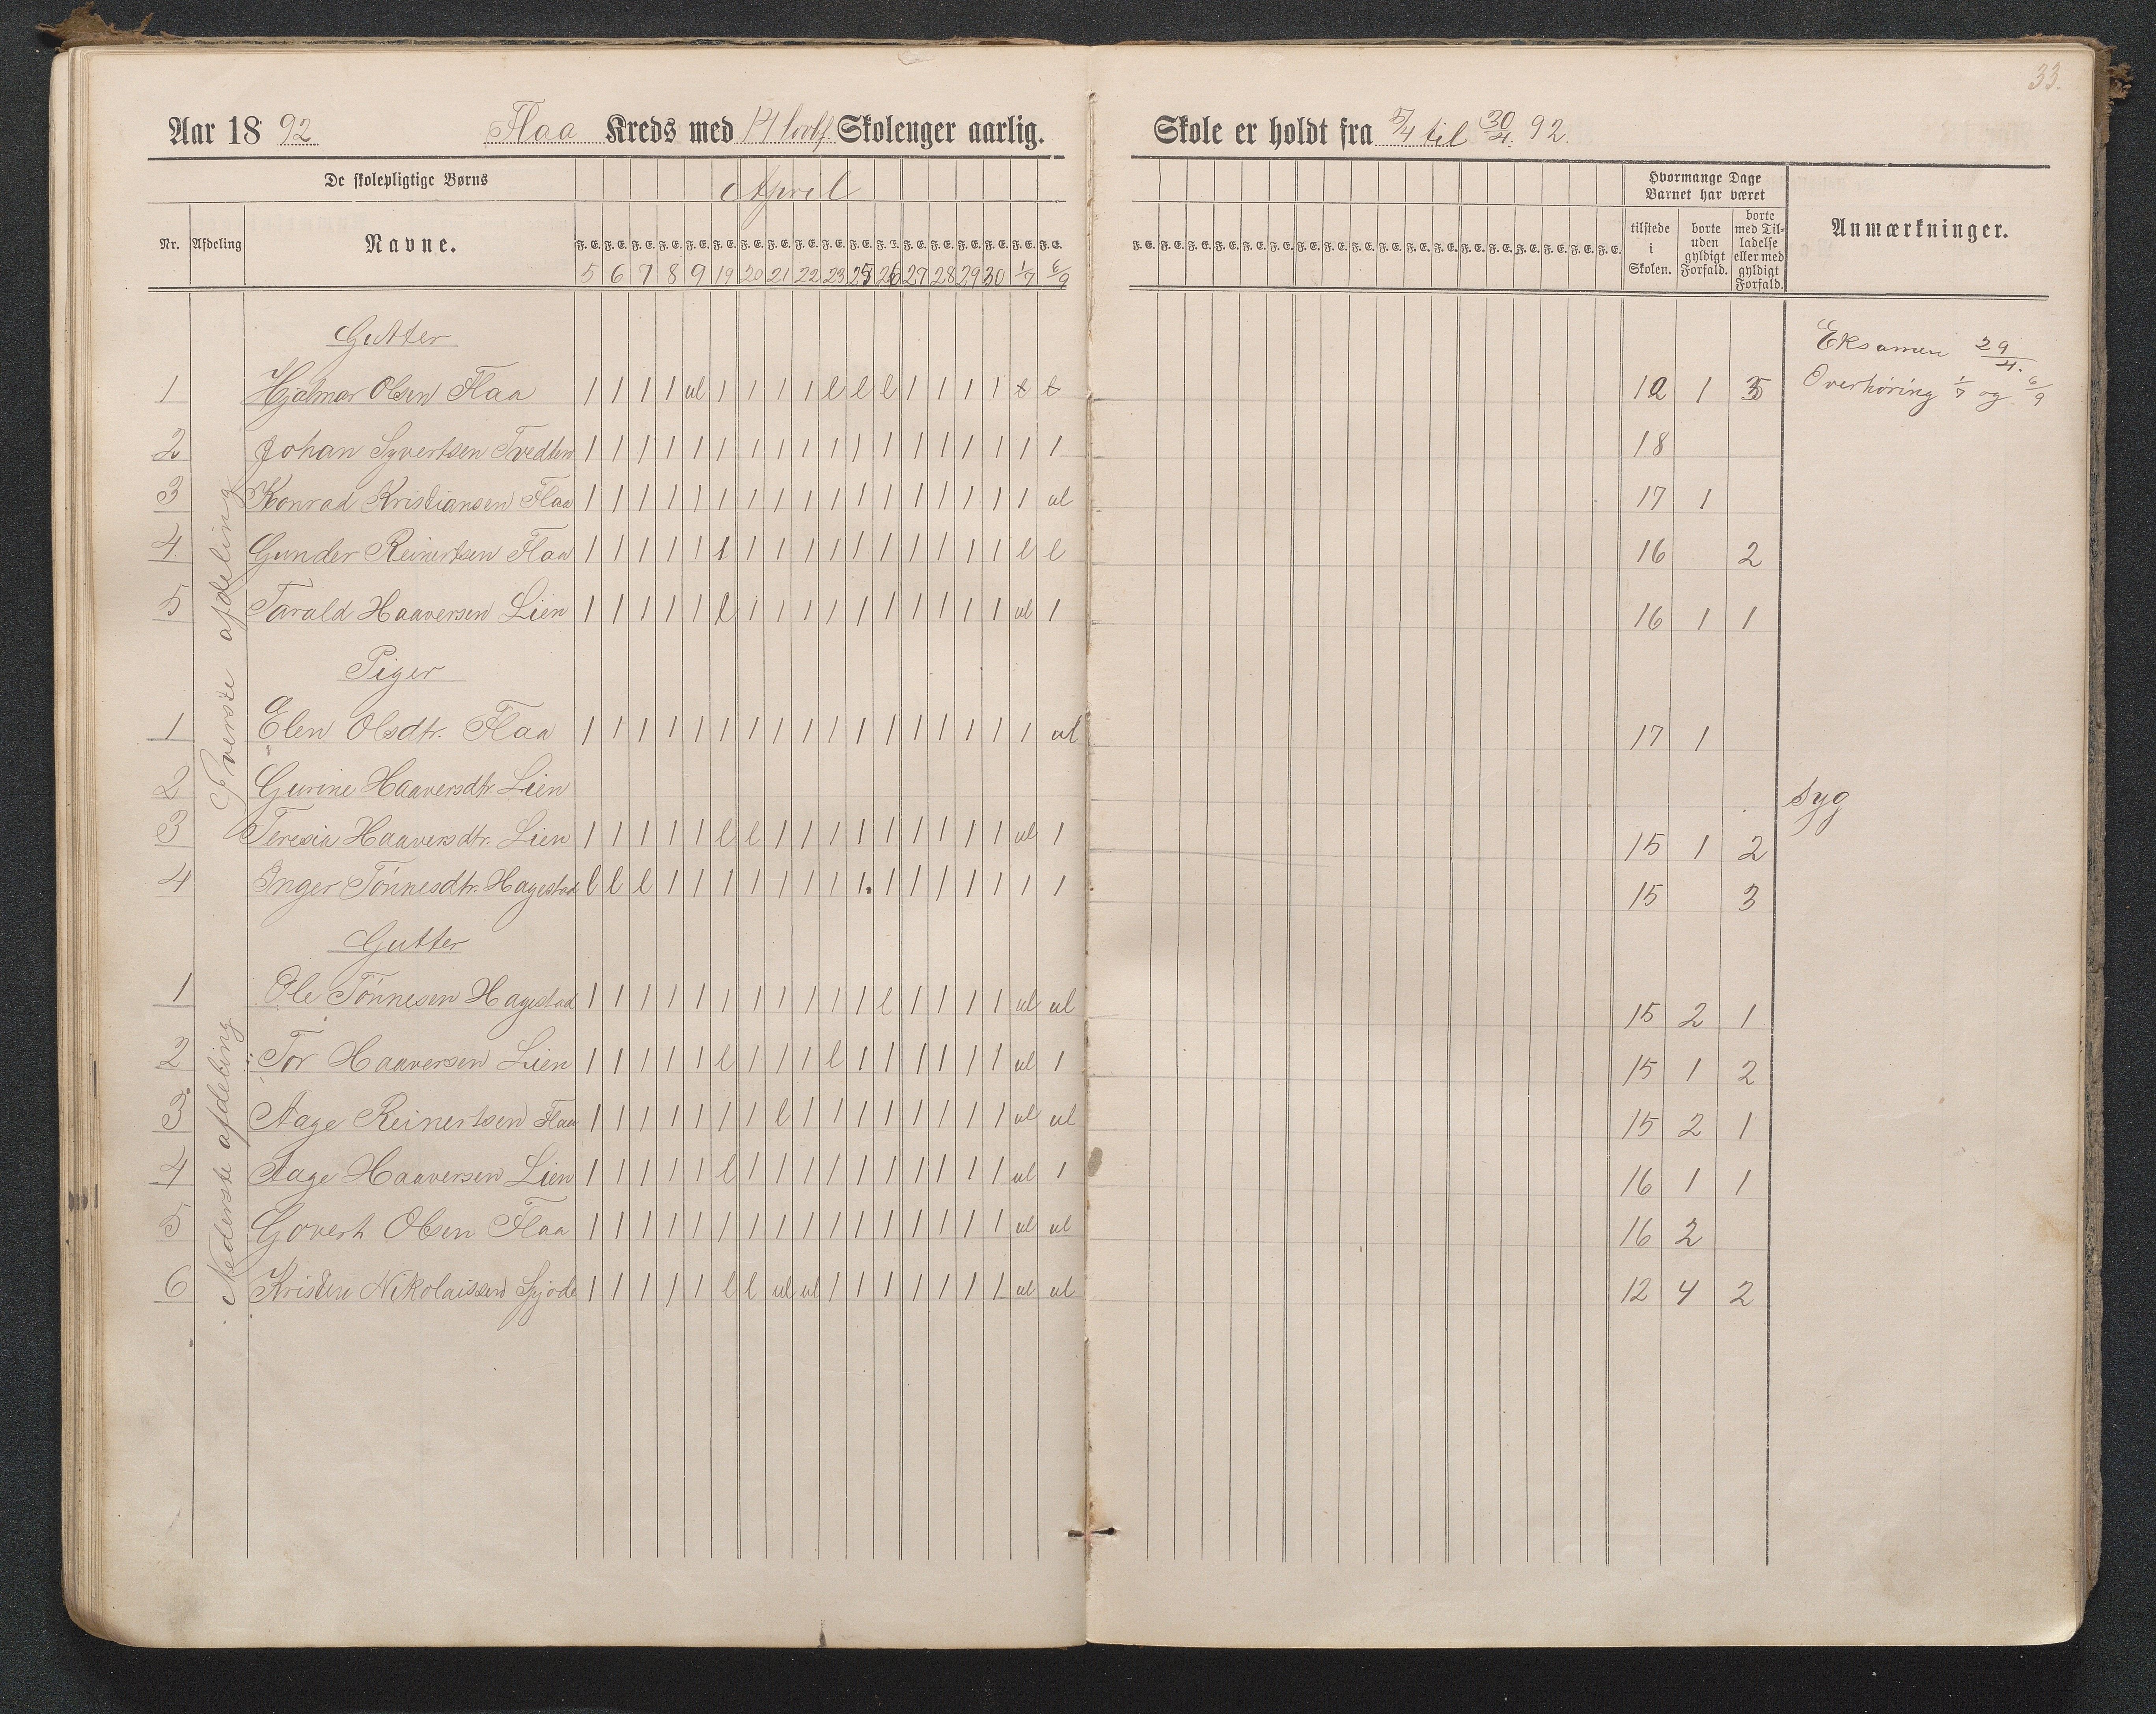 33.
Aar 18 92 Flaa Kreds med Skoleuger aarlig.
Skole er holdt fra 5/4 til 30/4 92.
De skolepligtige Børns
April
Hvormange Dage
Barnet har været
Nr. Afdeling Navne.
F. E. F. E. F. E. F. E. F. E. F. E. F. E. F. E. F. E. F. E. F. E. F. E. F. E. F. E. F. E. F. E. F. E. F. E.
5 6 7 8 9 19 20 21 22 23 25 26 27 28 29 30 1/7 6/9
F. E. F. E. F. E. F. E. F. E. F. E. F. E. F. E. F. E. F. E. F. E. F. E. F. E. F. E. F. E. F. E. F. E. F. E.
tilstede i Skolen.
borte uden gyldigt Forfald.
borte med Tilladelse eller med gyldigt Forfald.
Anmærkninger.
Øverste afdeling
Gutter
Eksamen 29/4.
1 Hjalmar Olsen Flaa 1 1 1 1 ul 1 1 1 1 l l l 1 1 1 1 l l 12 1 5 Overhøring 1/7 og 6/9
2 Johan Syvertsen Tvedten 1 1 1 1 1 1 1 1 1 1 1 1 1 1 1 1 1 1 18
3 Konrad Kristiansen Flaa 1 1 1 1 1 1 1 1 1 1 1 1 1 1 1 1 1 ul 17 1
4. Gunder Reinertsen Flaa 1 1 1 1 1 1 1 1 1 1 1 1 1 1 1 1 l l 16 2
5 Tarald Haaversen Lien 1 1 1 1 1 l 1 1 1 1 1 1 1 1 1 1 ul 1 16 1 1
Piger
1 Elen Olsdtr. Flaa 1 1 1 1 1 1 1 1 1 1 1 1 1 1 1 1 1 ul 17 1
2 Gurine Haaversdtr. Lien Syg
3 Teresia Haaversdtr. Lien 1 1 1 1 1 l l 1 1 1 1 1 1 1 1 1 ul 1 15 1 2
4 Inger Tönnesdtr. Hagestad l l l 1 1 1 1 1 1 1 1 1 1 1 1 1 1 1 15 3
Nederste afdeling
Gutter
1 Ole Tönnesen Hagestad 1 1 1 1 1 1 1 1 1 1 1 l 1 1 1 1 ul ul 15 2 1
2 Tor Haaversen Lien 1 1 1 1 1 l 1 1 1 l 1 1 1 1 1 1 ul 1 15 1 2
3 Aage Reinertsen Flaa 1 1 1 1 1 1 1 l 1 1 1 1 1 1 1 1 ul ul 15 2 1
4 Aage Haaversen Lien 1 1 1 1 1 l 1 1 1 1 1 1 1 1 1 1 ul 1 16 1 1
5 Govert Olsen Flaa 1 1 1 1 1 1 1 1 1 1 1 1 1 1 1 1 ul ul 16 2
6 Nikolaissen 1 1 1 1 1 l l ul ul 1 1 1 1 1 1 1 ul ul 12 4 2